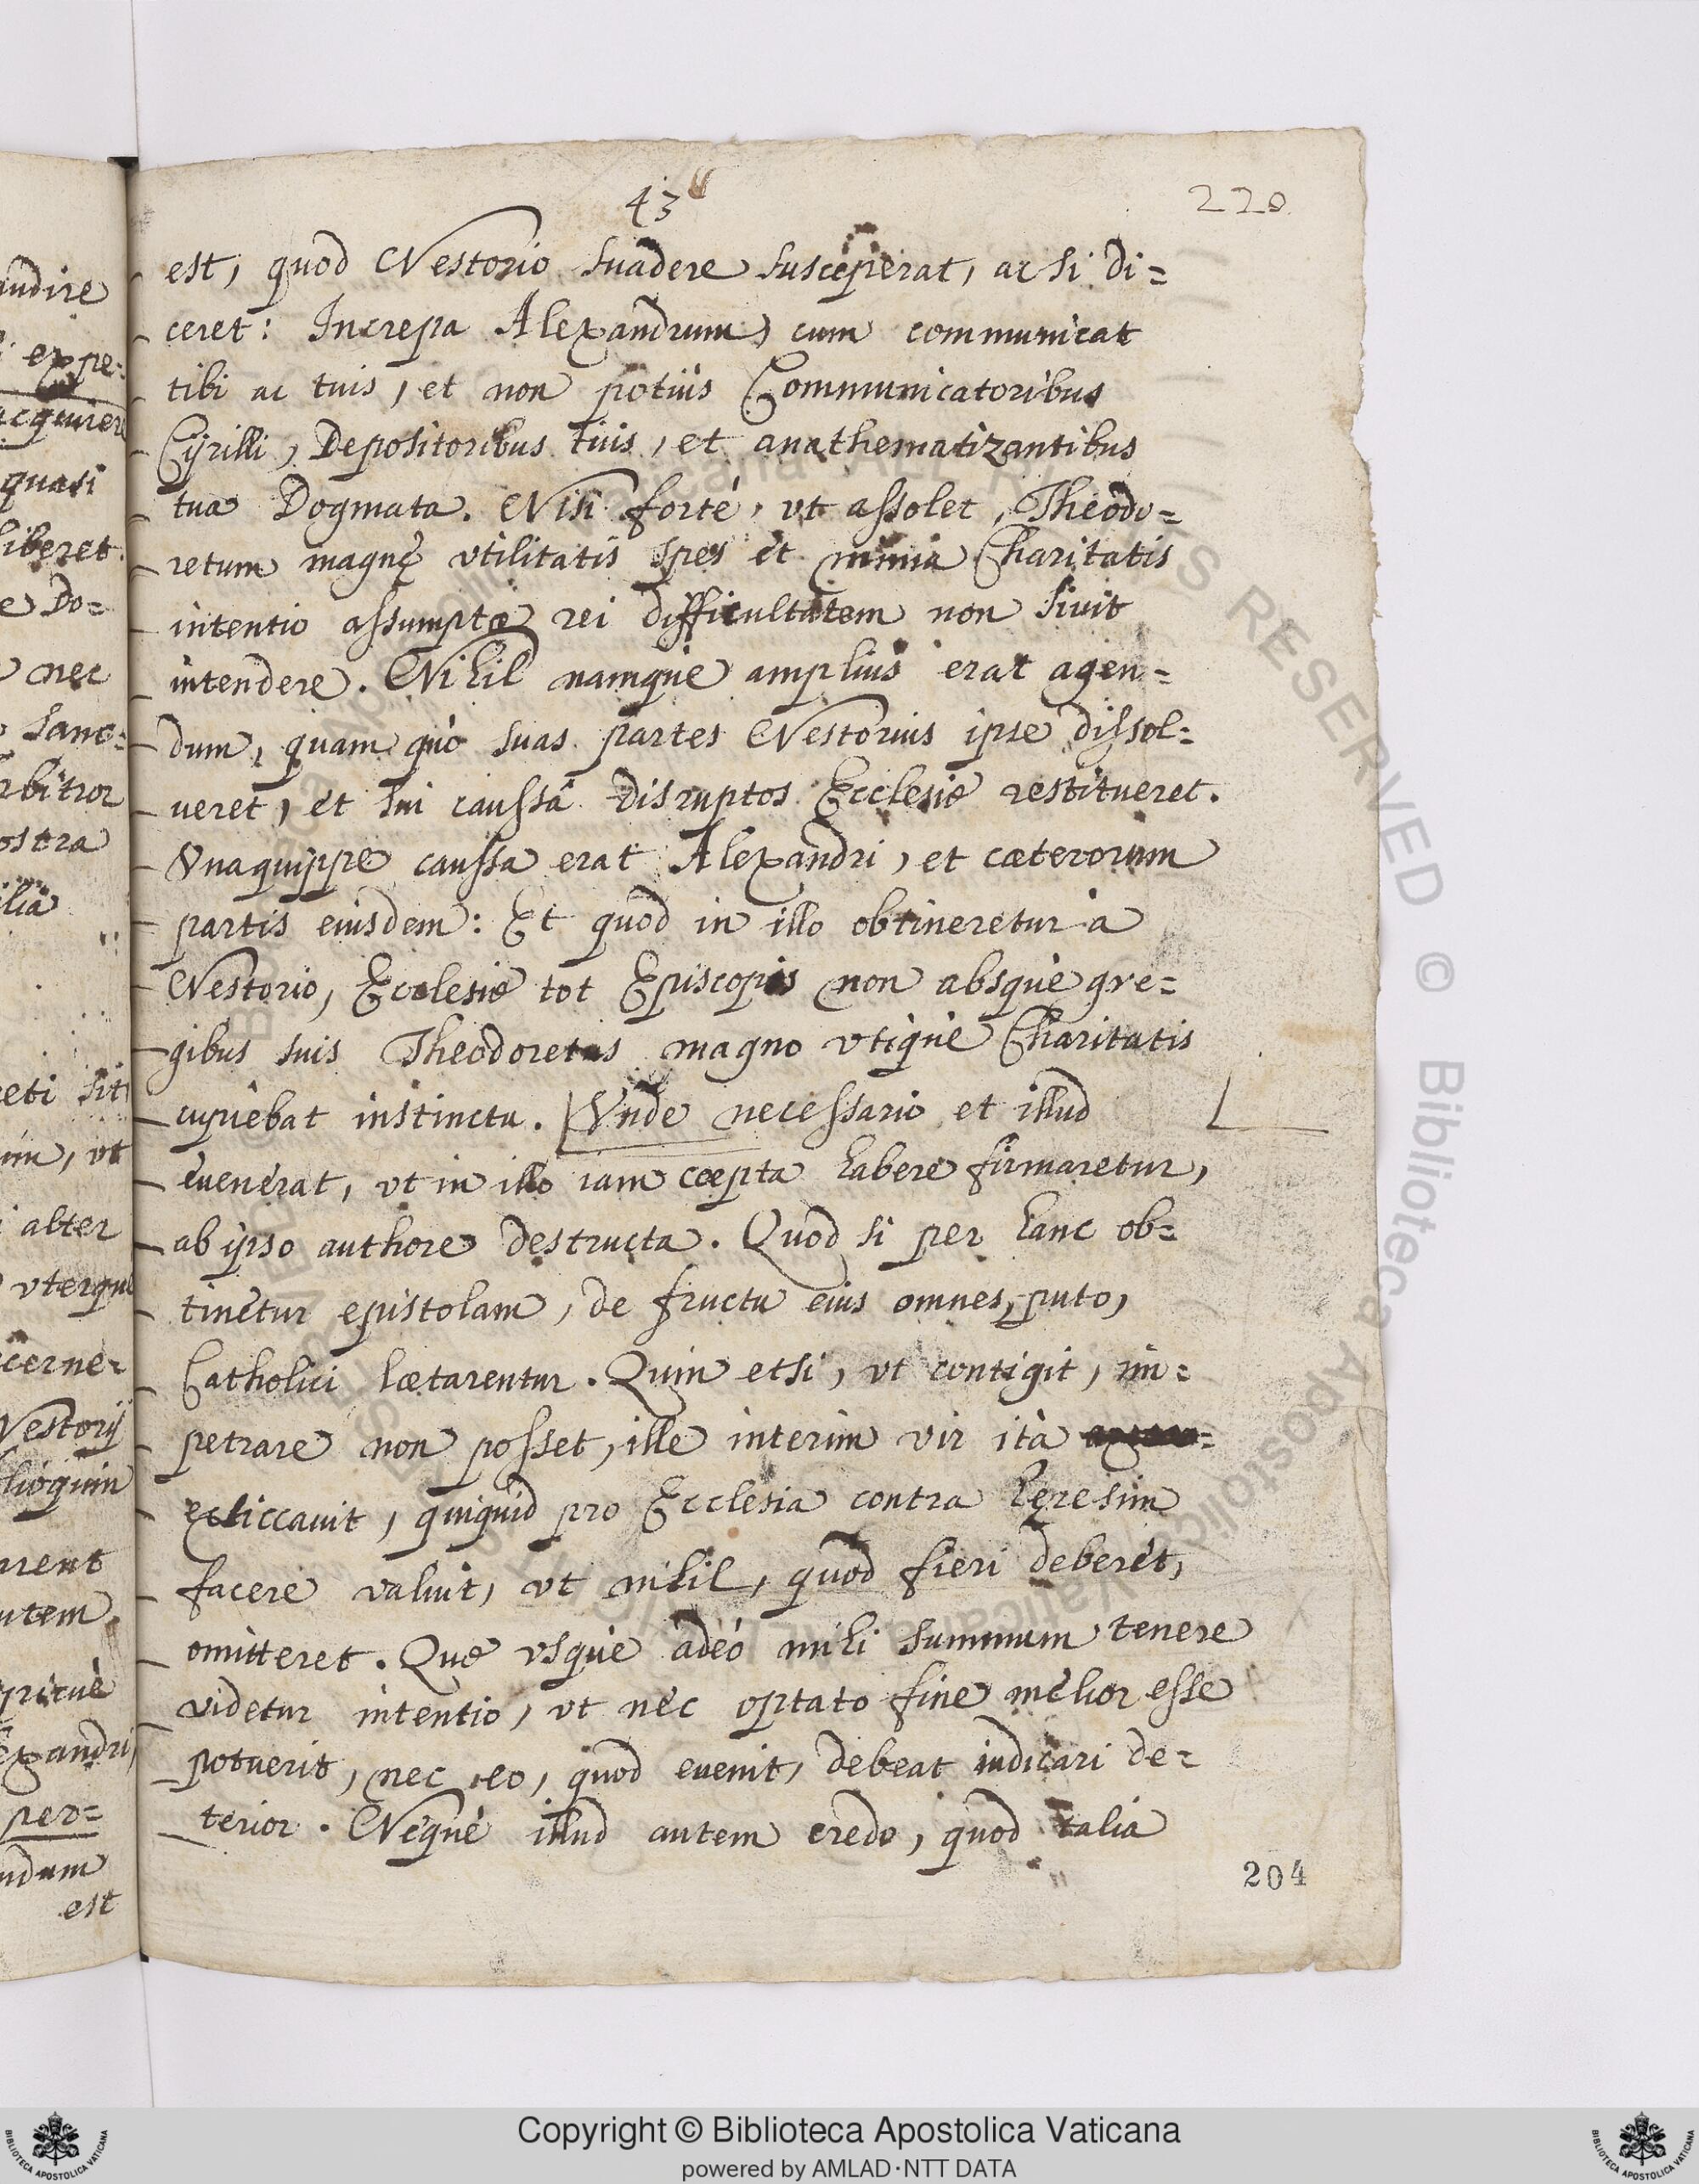 43
220
est, quod Nestorio suadere susceperat, ac si di=
ceret: Increpa Alexandrum, cum communicat
tibi ac tuis, et non potiùs Communicatoribus
Cyrilli, Depositoribus tuis, et anathematizantibus
tua Dogmata. Nisi fortè, vt assolet, Theodo=
retum magnę vtilitatis spes et nimia Charitatis
intentio assumptæ rei difficultatem non siuit
intendere. Nihil namque amplius erat agen=
dum, quam quò suas partes Nestorius ipse dissol=
ueret, et sui caussâ disruptos Ecclesiæ restitueret.
Vnaquippe caussa erat Alexandri, et cæterorum
partis eiusdem: Et quod in illo obtineretur à
Nestorio, Ecclesiæ tot Episcopis non absque gre=
gibus suis Theodoretus magno vtique Charitatis
cupiebat instinctu. Vnde necessario et illud
euenerat, vt in illo iam cœpta labere firmaretur,
ab ipso authore destructa. Quod si per hanc ob=
tinetur epistolam, de fructu eius omnes, puto,
Catholici lætarentur. Quin etsi, vt contigit, im=
petrare non posset, ille interim vir ità
quiquid pro Ecclesia contra hęresim
facere valuit, vt nihil, quod fieri deberet,
omitteret. Quæ vsque adeò mihi summum tenere
videtur intentio, vt nec optato fine melior esse
potuerit, nec eo, quod euenit, debeat iudicari de=
terior. Neque illud autem credo, quod talia
204
audire
expe=
quasi
liberet
Do=
nec
sanc=
rbitror
ostra
ilia
sit
vt
alter
vterque
cerne=
Nestorij
lioquin
rent
utem
xandri
per=
ndum
est
Copyright © Biblioteca Apostolica Vaticana
powered by AMLAD·NTT DATA
BIBLIOTECA APOSTOLICA VATICANA
BIBLIOTECA APOSTOLICA VATICANA